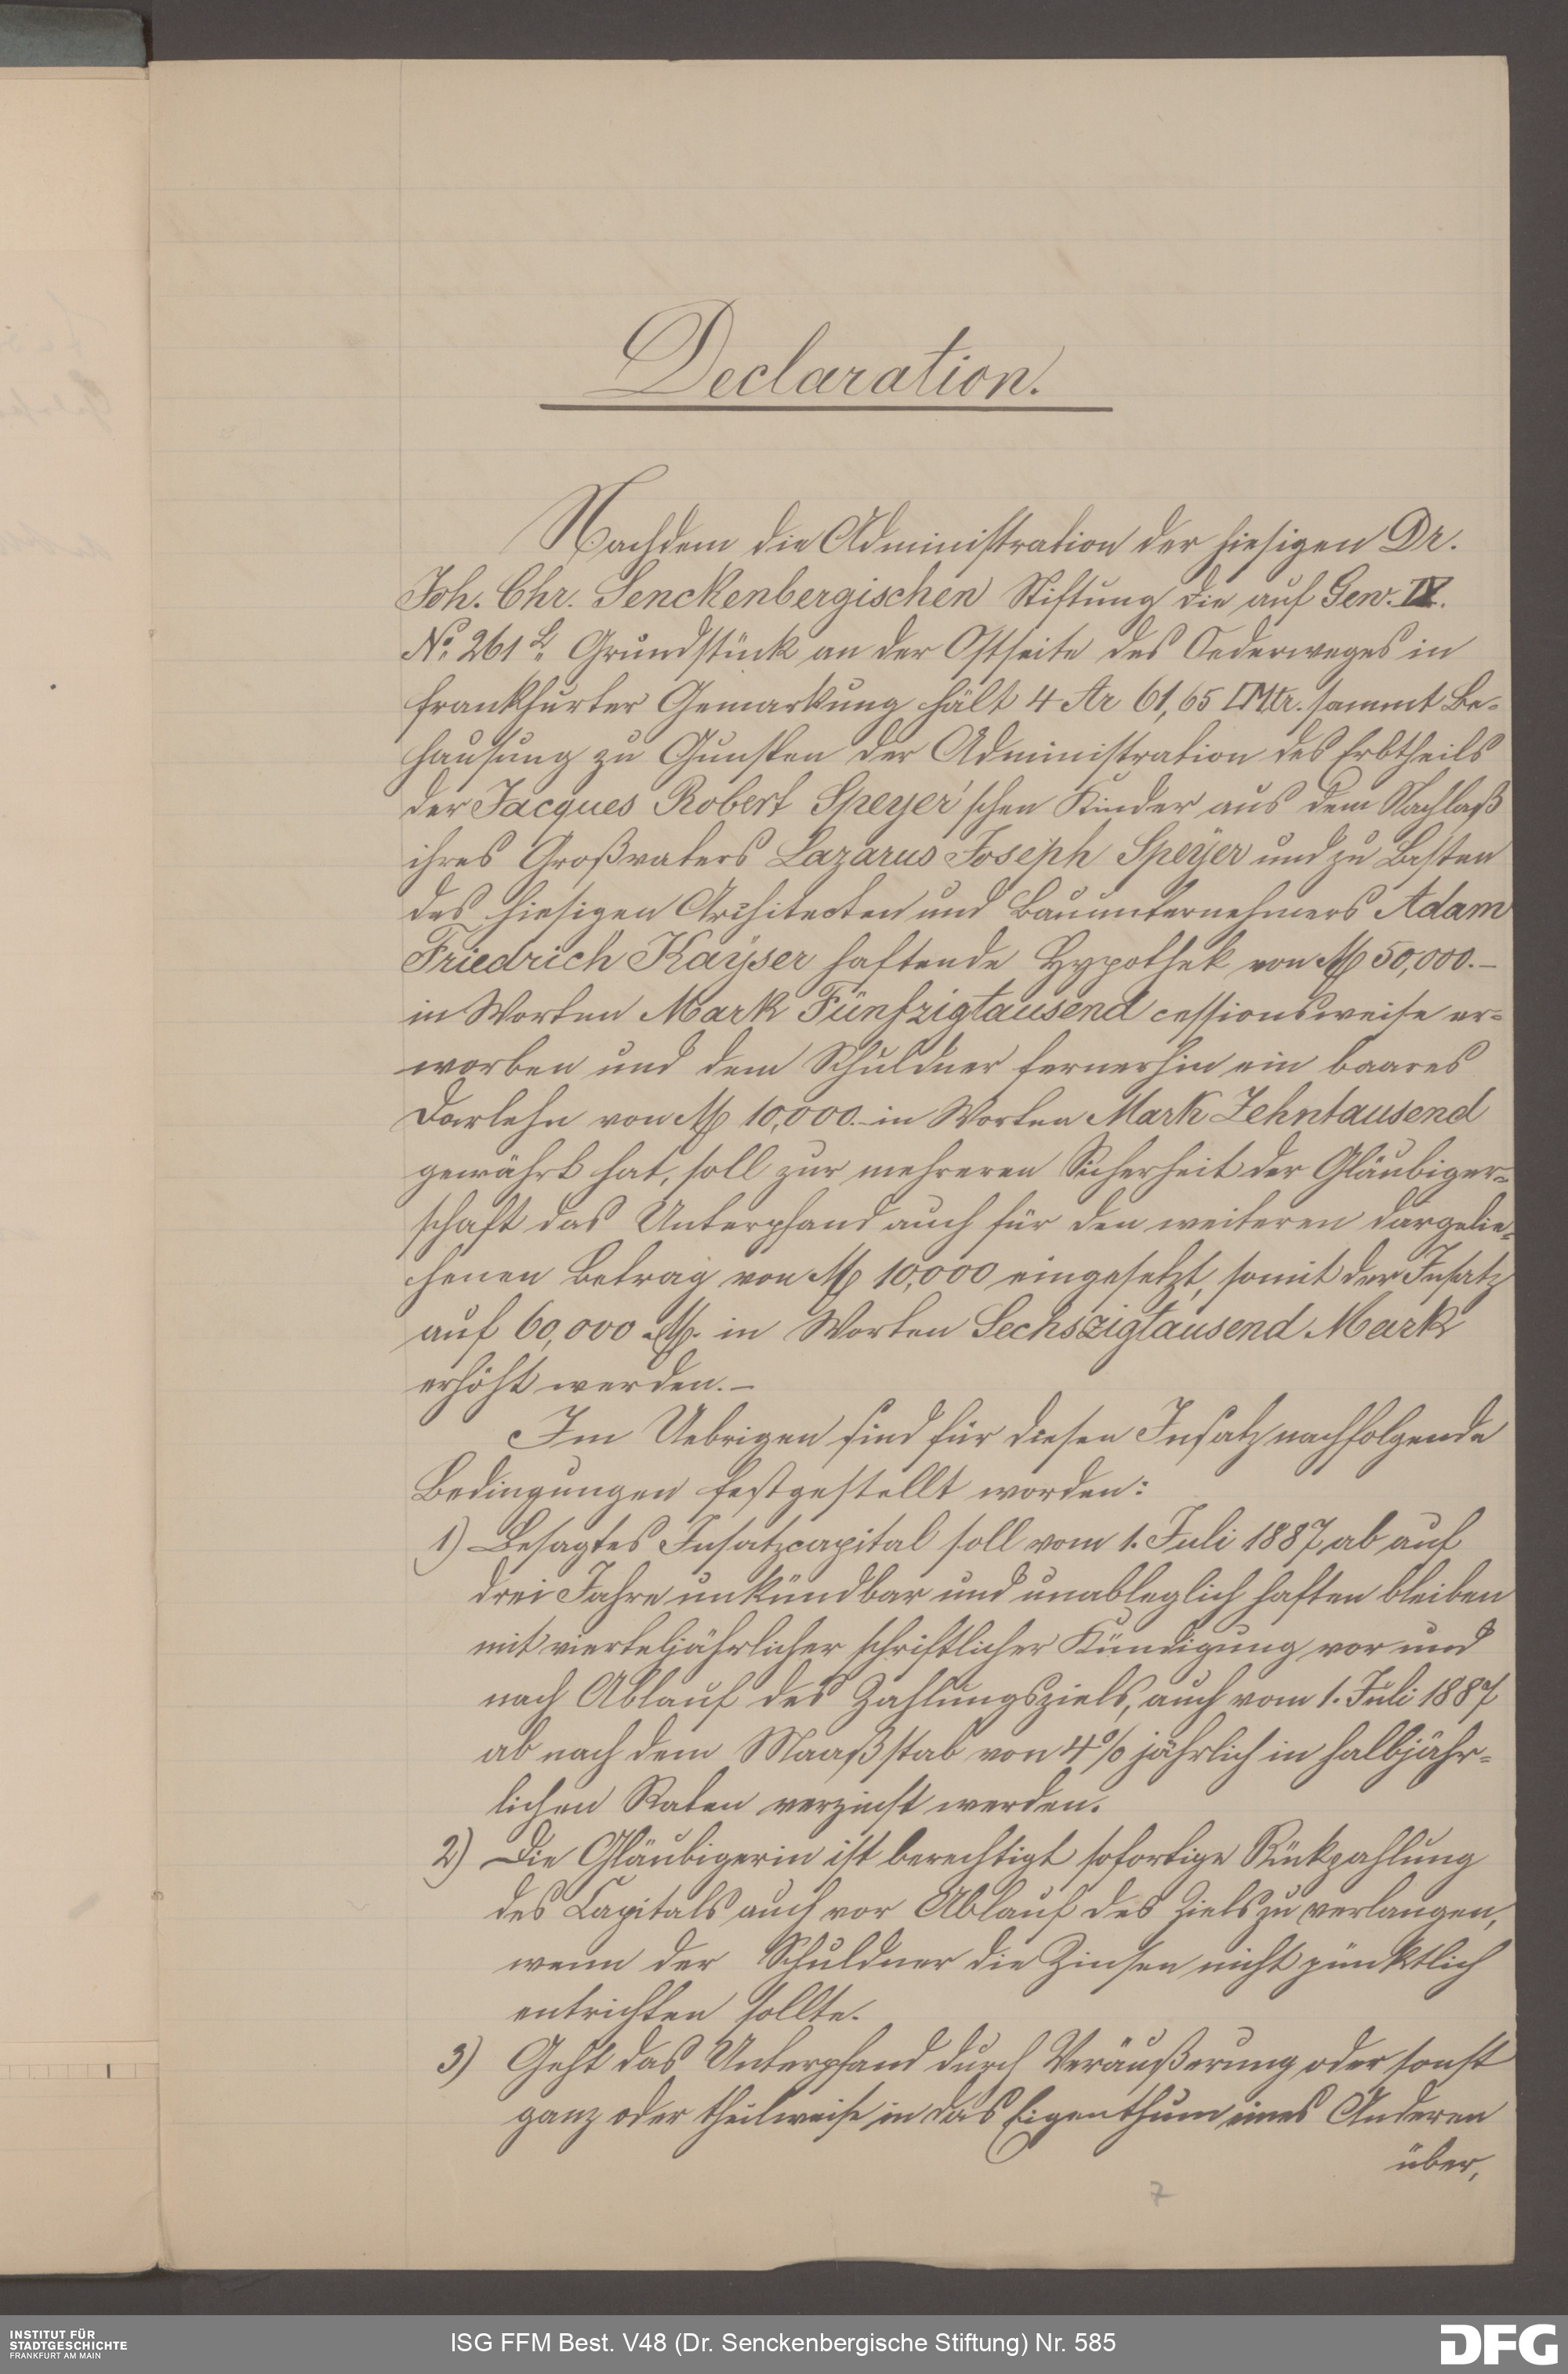 Declaration.
Nachdem die Administration der hiesigen Dr.
Joh. Chr. Senckenbergischen Stiftung die auf Gew. IV.
No. 261 L. Grundstück an der Ostseite des Oederweges in
Frankfurter Gemarkung hält 4 Ar 61,65 □Mtr. sammt Be-
hausung zu Gunsten der Administration des Erbtheils
der Jacques Robert Speyer'schen Kinder aus dem Nachlaß
ihres Großvaters Lazarus Joseph Speÿer und zu Lasten
des hiesigen Architecten und Bauunternehmers Adam
Friedrich Kaÿser haftende Hypothek von M 50,000.-
in Worten Mark Fünfzigtausend cessionsweise er-
worben und dem Schuldner fernerhin ein baares
Darlehn von M 10,000.- in Worten Mark Zehntausend
gewährt hat, soll zur mehreren Sicherheit der Gläubiger-
schaft das Unterpfand auch für den weiteren dargelie-
henen Betrag von M 10,000 eingesetzt, somit der Insatz
auf 60,000 M. in Worten Sechszigtausend Mark
erhöht werden.-
Im Uebrigen sind für diesen Insatz nachfolgende
Bedingungen festgestellt worden:
1) Besagtes Insatzcapital soll vom 1. Juli 1887 ab auf
drei Jahre unkündbar und unableglich haften bleiben
mit vierteljährlicher schriftlicher Kündigung vor und
nach Ablauf des Zahlungsziels, auch vom 1. Juli 1887
ab nach dem Maaßstab von 4% jährlich in halbjähr-
lichen Raten verzinst werden.
2) Die Gläubigerin ist berechtigt sofortige Rückzahlung
des Capitals auch vor Ablauf des Ziels zu verlangen,
wenn der Schuldner die Zinsen nicht pünktlich
entrichten sollte.
3) Geht das Unterpfand durch Veräußerung oder sonst
ganz oder theilweise in das Eigenthum eines Anderen
über,
7
INSTITUT FÜR
STADTGESCHICHTE
FRANKFURT AM MAIN
ISG FFM Best. V48 (Dr. Senckenbergische Stiftung) Nr. 585
DFG